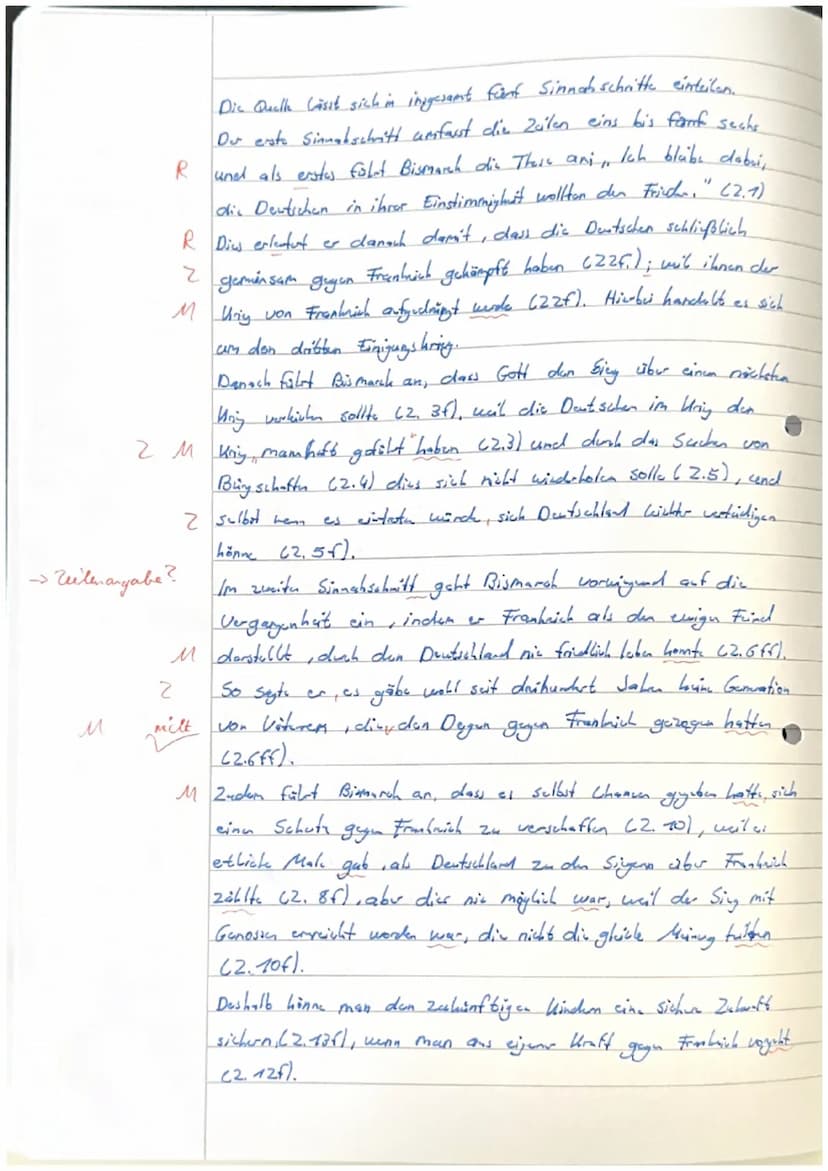 Die Quelle lässt sich in insgesamt fünf Sinnabschnitte einteilen.
Der erste Sinnabschnitt umfasst die Zeilen eins bis fünf sechs
R und als erstes führt Bismarck die These an: „Ich bleibe dabei,
die Deutschen in ihrer Einstimmigkeit wollten den Frieden." (Z.1)
R Dies erläutert er danach damit, dass die Deutschen schließlich
Z gemeinsam gegen Frankreich gekämpft haben (Z2f.); weil ihnen der
M Krieg von Frankreich aufgedrängt wurde (Z2f). Hierbei handelt es sich
um den dritten Einigungskrieg.
Danach führt Bismarck an, dass Gott den Sieg über einen nächsten
Krieg verleihen sollte (Z. 3f), weil die Deutschen im Krieg den
Z M Krieg „mannhaft geführt" haben (Z.3) und durch das Suchen von
Bürgschaften (Z.4) dies sich nicht wiederholen solle (Z.5), und
Z selbst wenn es eintreten würde, sich Deutschland leichter verteidigen
könne (Z.5f).
→ Zeilenangabe? Im zweiten Sinnabschnitt geht Bismarck vorwiegend auf die
Vergangenheit ein, indem er Frankreich als den ewigen Feind
M darstellt, durch den Deutschland nie friedlich leben konnte (Z.6ff).
Z So sagte er, es gäbe wohl seit dreihundert Jahren keine Generation
M nicht von Vätern, die den Degen gegen Frankreich gezogen hatten
(Z.6ff).
M Zudem führt Bismarck an, dass es selbst Chancen gegeben hatte, sich
einen Schutz gegen Frankreich zu verschaffen (Z. 10), weil es
etliche Male gab, als Deutschland zu den Siegern über Frankreich
zählte (Z. 8f), aber dies nie möglich war, weil der Sieg mit
Genossen erreicht worden war, die nicht die gleiche Meinung teilten
(Z.10f).
Deshalb könne man den zukünftigen Kindern eine sichere Zukunft
sichern (Z.13f), wenn man aus eigener Kraft gegen Frankreich vorgeht
(Z.12f).